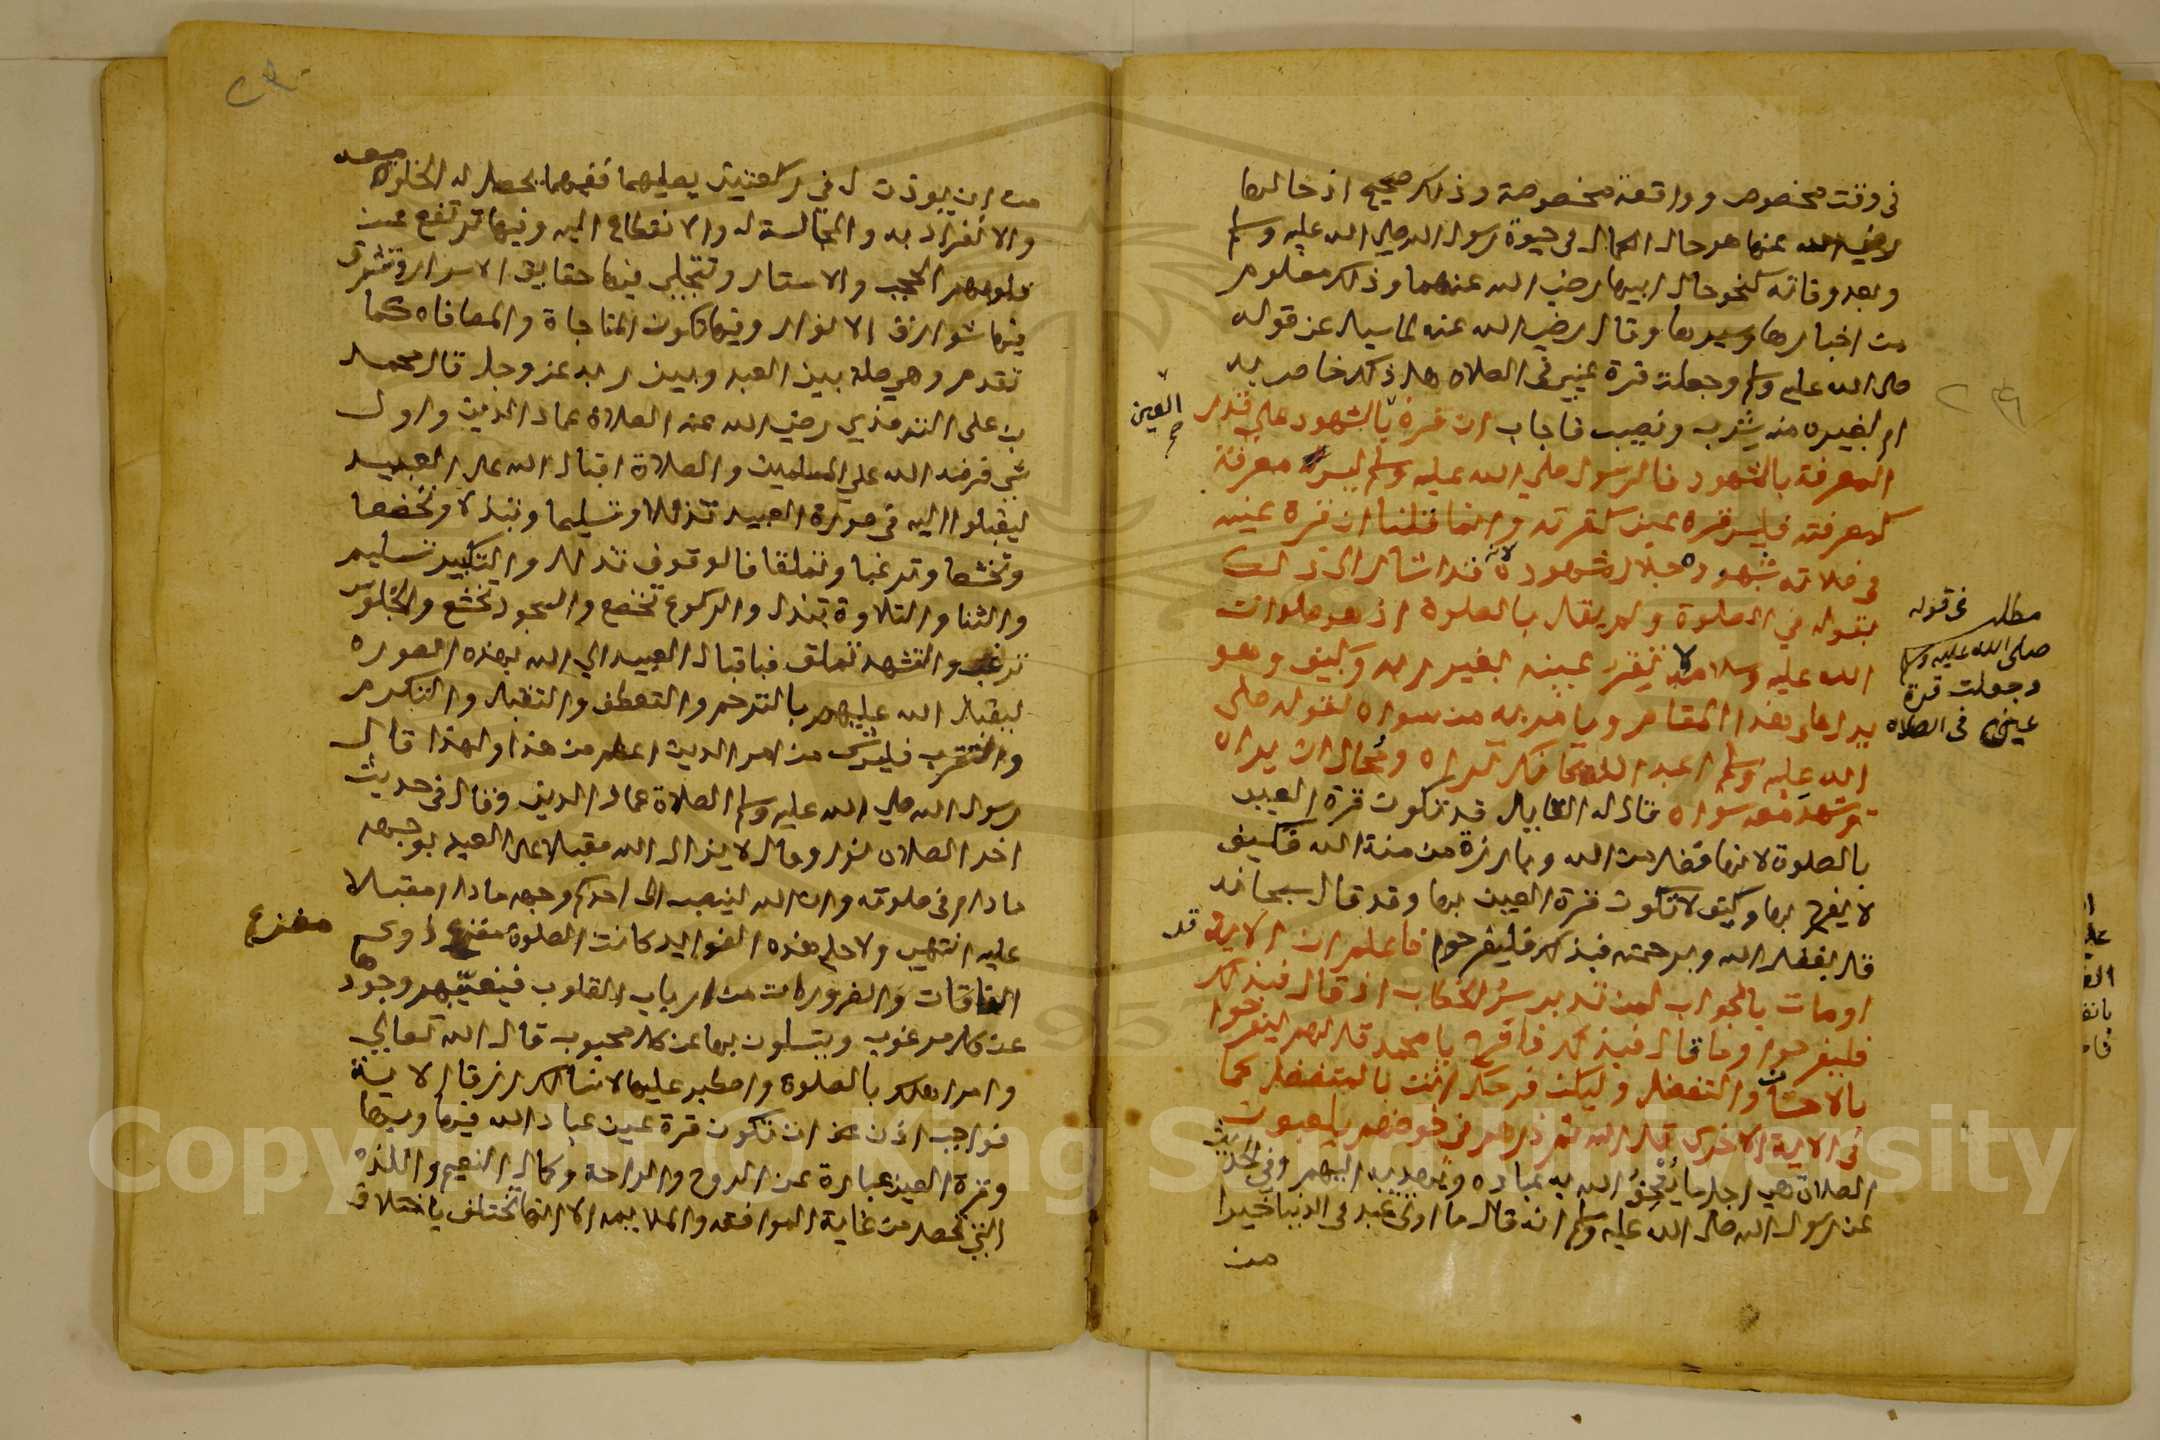 في وقت مخصوص وواقعة مخصوصة وذلك صحيح اذ حالها
رضي الله عنها هو حال الكمال في حيوة رسول الله صلى الله عليه وسلم
وبعد وفاته كنحو حال ابيها رضي الله عنهما وذلك معلوم
من اخبارها وسيرها وقال رضي الله عنه لما سيل عن قوله
صلى الله عليه وسلم وجعلت قرة عيني في الصلاه هل ذلك خاص به
ام لغيره منه شرب ونصيب فاجاب ان قرة بالشهود على قدر
العين
صح
المعرفة بالمشهود فالرسول صلي الله عليه وسلم ليس معرفة
كمعرفته فليس قرة عين كقرته وانما قلنا ان قرة عينه
في صلاته بشهوده جلال مشهوده لانه قد اشار الى ذلك
بقوله في الصلوة ولم يقل بالصلوة اذ هو صلوات
الله عليه وسلامه لا تقر عينه بغير ربه وكيف وهو
يدل على هذا المقام ويامر به من سواه لقوله صلى
الله عليه وسلم اعبد الله كانك تراه ومحال ان يراه
ويشهد معه سواه قال له القايل قد تكون قرة العين
بالصلوة لانها فضل من الله وبارزة من منة الله فكيف
لا يفرح بها وكيف لا تكون قرة العين بها وقد قال سبحانه
قل بفضل الله وبرحمته فبذلك فليفرحوا فاعلم ان الاية قد
اومات بالجواب لمن تدبر سر الخطاب اذ قال فبذلك
فليفرحوا وما قال فبذلك فافرح يا محمد قل لهم ليفرحوا
بالاحسان والتفضل وليكن فرحك انت بالمتفضل كما
في الاية الاخرى قل الله ثم ذرهم في خوضهم يلعبون
الصلاة هي اجل ما الله به عباده ويهديه اليهم وفي الحديث
عن رسول الله صلى الله عليه وسلم انه قال ما اوتي عبد في الدنيا خيرا
من
مطلب في قوله
صلى الله عليه وسلم
وجعلت قرة
عيني في الصلاه
من ان يوذن له في ركعتين يصليهما ففيهما يحصل له الخلوة معه
والانفراد به والمجالسة له والانقطاع اليه وفيها ترتفع عن
قلوبهم الحجب والاستار وتتجلي فيها حقايق الاسرار وتشرق
فيها شوارق الانوار وفيها تكون المناجاة والمصافاه كما
تقدم وهي صلة بين العبد وبين ربه عز وجل قال محمد
بن علي الترمذي رضي الله عنه الصلاة عماد الدين واول
شي فرضه الله علي المسلمين والصلاة اقبال الله على العبيد
ليقبلوا اليه في صورة العبيد تذللا وتسليما وتبذلا وتخضعا
وتخشعا وترغبا وتملقا فالوقوف تذلل والتكبير تسليم
والثنا والتلاوة تبذل والركوع تخضع والسجود تخشع والجلوس
ترغب والتشهد تملق فباقبال العبيد الي الله بهذه الصوره
ليقبل الله عليهم بالترحم والتعطف والتقبل والتكرم
والتقرب فليس شي من امر الدين اعظم من هذا ولهذا قال
رسول الله صلى الله عليه وسلم الصلاة عماد الدين وقال في حديث
اخر الصلاة نور وقال لا يزال الله مقبلا على العبد بوجهه
ما دام في صلوته وان الله لينصب الى احدكم وجهه ما دام مقبلا
عليه انتهى ولاجل هذه الفوايد كانت الصلوة مفزع ذوي
مفزع
الفاقات والضرورات من ارباب القلوب فيغيبهم وجودها
عن كل مرغوب ويتسلون بها عن كل محبوب قال الله تعالي
وامر اهلك بالصلوة واصطبر عليها لا نسالك رزقا الاية
فواجب اذن ان تكون قرة عين عباد الله فيها وبها
وقرة العين عبارة عن الروح والراحة وكمال النعيم واللذه
التي تحصل من غاية الموافقه والملايمه الا انها تختلف باختلاف
Copyright © King Saud University